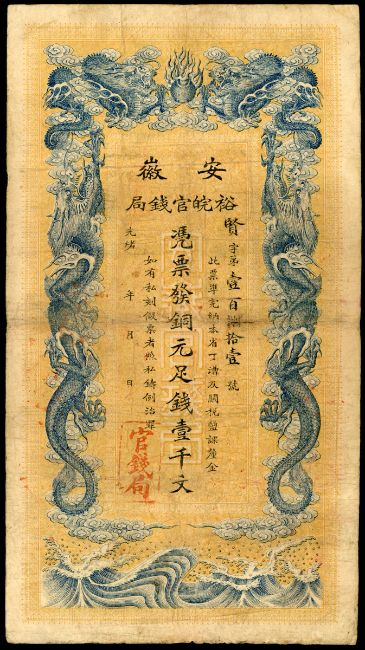 安徽
裕皖官錢局
賢字第壹百拾壹號
此票準完納本省丁漕及關稅鹽課釐金
憑票發銅元足錢壹千文
如有私刻假票者照私鑄例治罪
光緒 年 月 日
官錢局